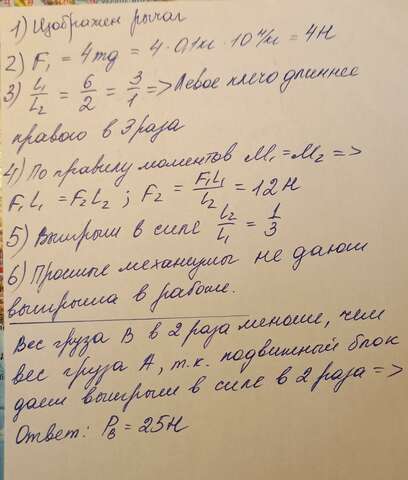 1) Изображен рычаг
2) F₁ = 4mg = 4 · 0,1кг · 10 Н/кг = 4Н
3) L₁/L₂ = 6/2 = 3/1 => Левое плечо длиннее
правого в 3 раза
4) По правилу моментов M₁ = M₂ =>
F₁L₁ = F₂L₂ ; F₂ = F₁L₁/L₂ = 12Н
5) Выигрыш в силе L₂/L₁ = 1/3
6) Простые механизмы не дают
выигрыша в работе.
Вес груза В в 2 раза меньше, чем
вес груза А, т.к. подвижный блок
дает выигрыш в силе в 2 раза =>
Ответ: P_B = 25Н